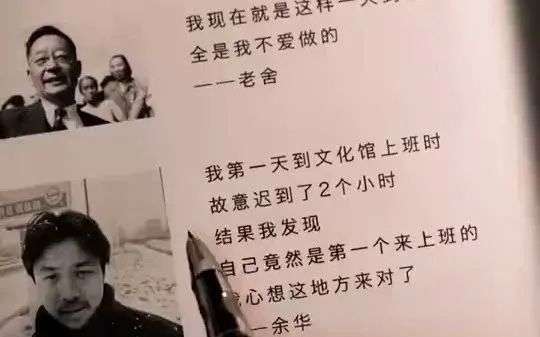 我现在就是这样一天到
全是我不爱做的
——老舍
我第一天到文化馆上班时
故意迟到了2个小时
结果我发现
自己竟然是第一个来上班的
我心想这地方来对了
——余华